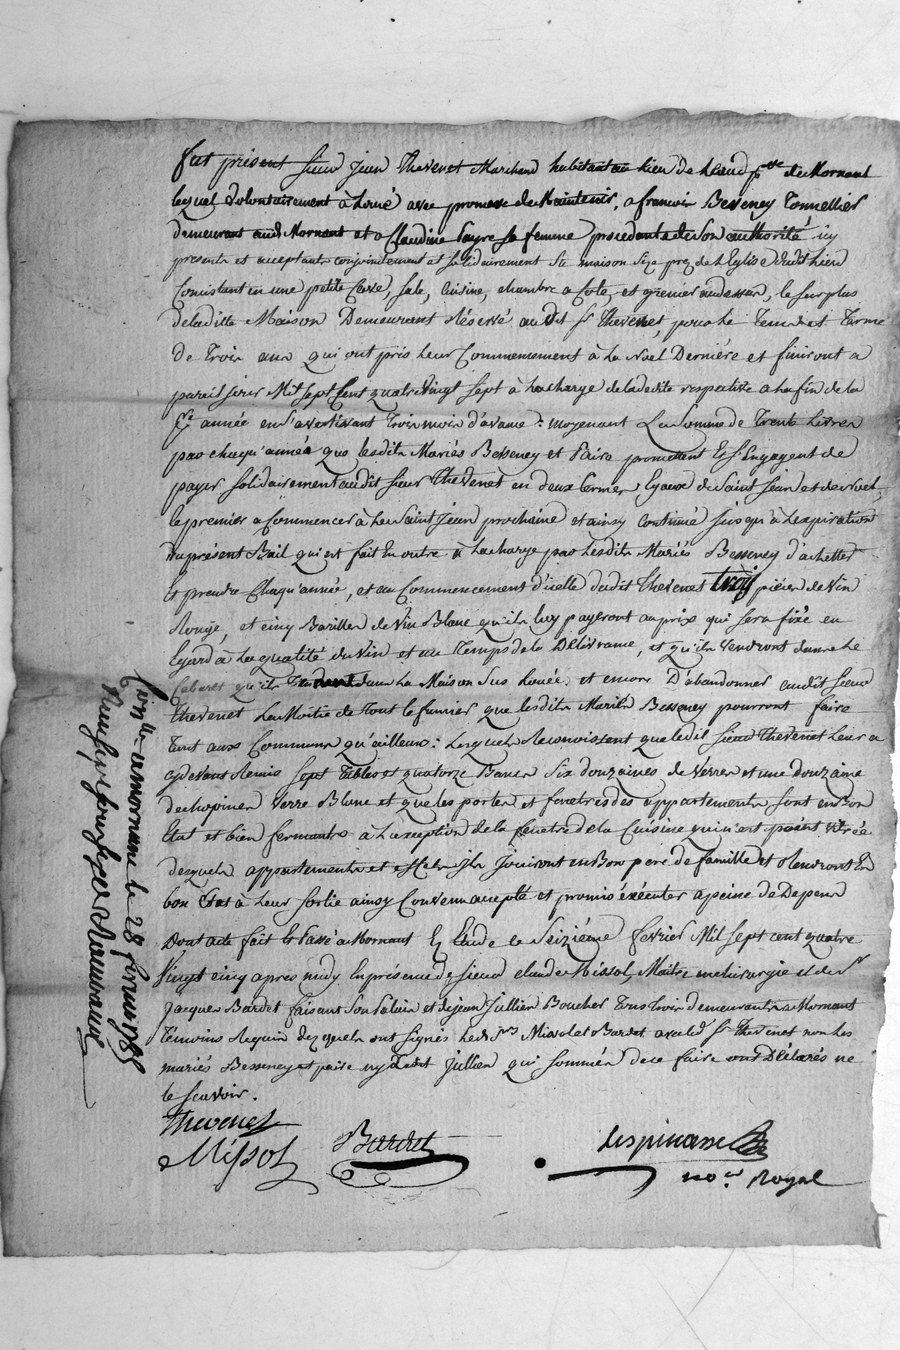 fut présent sieur jean Thevenet Marchand habitant au lieu de p.sse de Mornant
lequel volontairement à Loué avec promesse de Maintenir, a francois Besseney Tonnellier
demeurant aud. Mornant et a Claudine payre sa femme procedante de son authorité icy
presents et acceptants conjointement et solidairement Sa maison Size prez de l'Eglise dudit lieu
Consistant en une petite Cave, sale, Cuisine, chambre a Coté, et grenier au dessus, le surplus
de ladite Maison Demeurant Réservé audit Sr Thevenet, pour le Tems et Terme
de Trois ans qui ont pris leur Commencement à la Noel Derniére et finiront a
pareil jour Mil Sept Cent quatre Vingt Sept à la charge de la dedite respective a la fin de la
année en s'avertissant Trois mois d'avance. moyenant La Somme de Trente Livres
par chaqu'année que lesdits Mariés Besseney et Paire promettent et s'Engagent de
payer solidairement audit sieur Thevenet en deux termes Egaux de Saint Jean et de Noel,
le premier a Commencer à la Saint Jean prochaine et ainsy Continué jusqu'à l'expiration
du présent Bail qui est fait En outre à la charge par lesdits Mariés Besseney d'achetter
et prendre Chaqu'année, et au Commencement d'icelle dudit Thevenet trois piéces de Vin
Rouge, et cinq Barilles de Vin Blanc qu'ils luy payeront au prix qui sera fixé eu
Egard à La qualité du Vin et au Temps de la Délivrance, et qu'ils Vendront dans le
Cabaret qu'ils dans La Maison Sus Louée. et encore D'abandonner audit Sieur
Thevenet La Moitié de Tout le fumier que lesdits Mariés Besseney pourront faire
Tant aux Communs qu'ailleurs: Lesquels Reconnoissent que ledit Sieur Thevenet Leur a
cy devant Remis Sept Tables et quatorze Bancs Six douzaines de Verres et une douzaine
de chopines Verre Blanc et que les portes et fenetres des appartements sont en Bon
Etat et bien fermants à L'exception de la fenetre de la Cuisine qui n'est point vitrée
desquels appartements et effets ils Jouiront en Bon pere de famille et Rendront En
bon Etat à Leur Sortie ainsy Convenu accepté et promis éxécuter a peine de Depens
Dont acte fait et Passé a Mornant En Etude le Seiziéme fevrier Mil Sept cent quatre
Vingt cinq apres midy En présence de Sieur claude Missol, Maitre en chirurgie et de Sr
Jacques Bardet faisant Son Salun et de jean Jullien Boucher Tous Trois demeurants a Mornant
Témoins Requis desquels ont Signés lesd. Srs Missol et Bardet avec led. Sr Thevenet non les
mariés Besseney et paire ny ledit Jullien qui sommés de ce faire ont Déclarés ne
le scavoir.
Thevenet
Missol Bardet Lespinasse
no.re Royal
Con.lle a mornant le 28 fevrier 1785